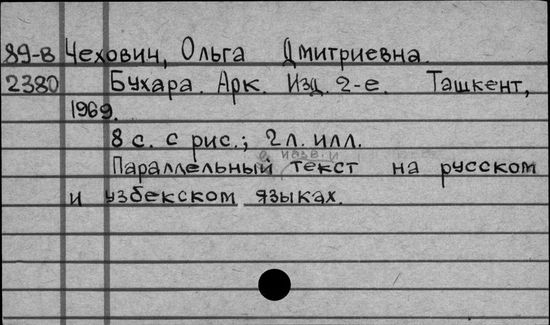 89-в Чехович, Ольга Дмитриевна.
2380 Бухара. Арк. Изд. 2-е. Ташкент,
1969.
8 с. с рис.; 2 л. илл.
Параллельный текст на русском
и узбекском языках.